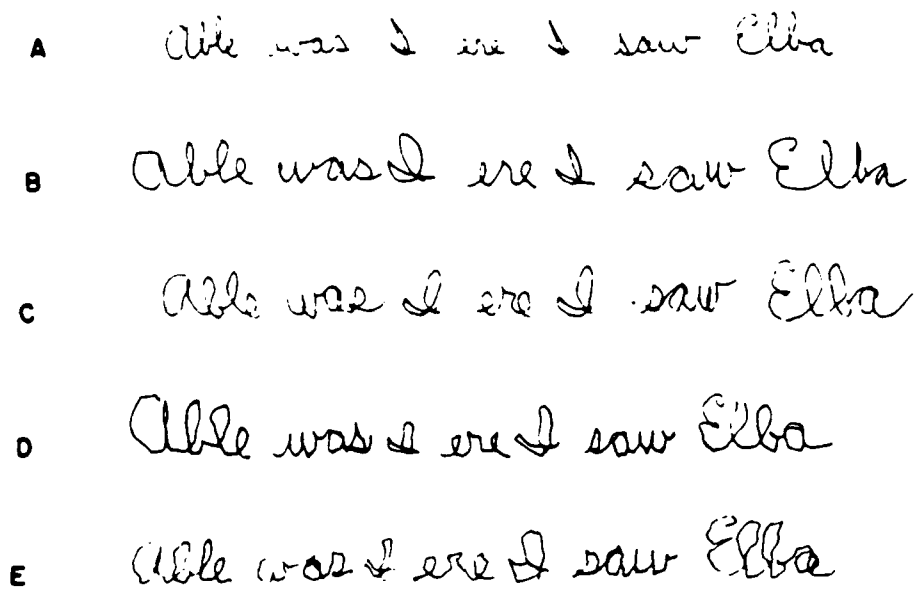 A Able was I ere I saw Elba
B Able was I ere I saw Elba
C Able was I ere I saw Elba
D Able was I ere I saw Elba
E Able was I ere I saw Elba